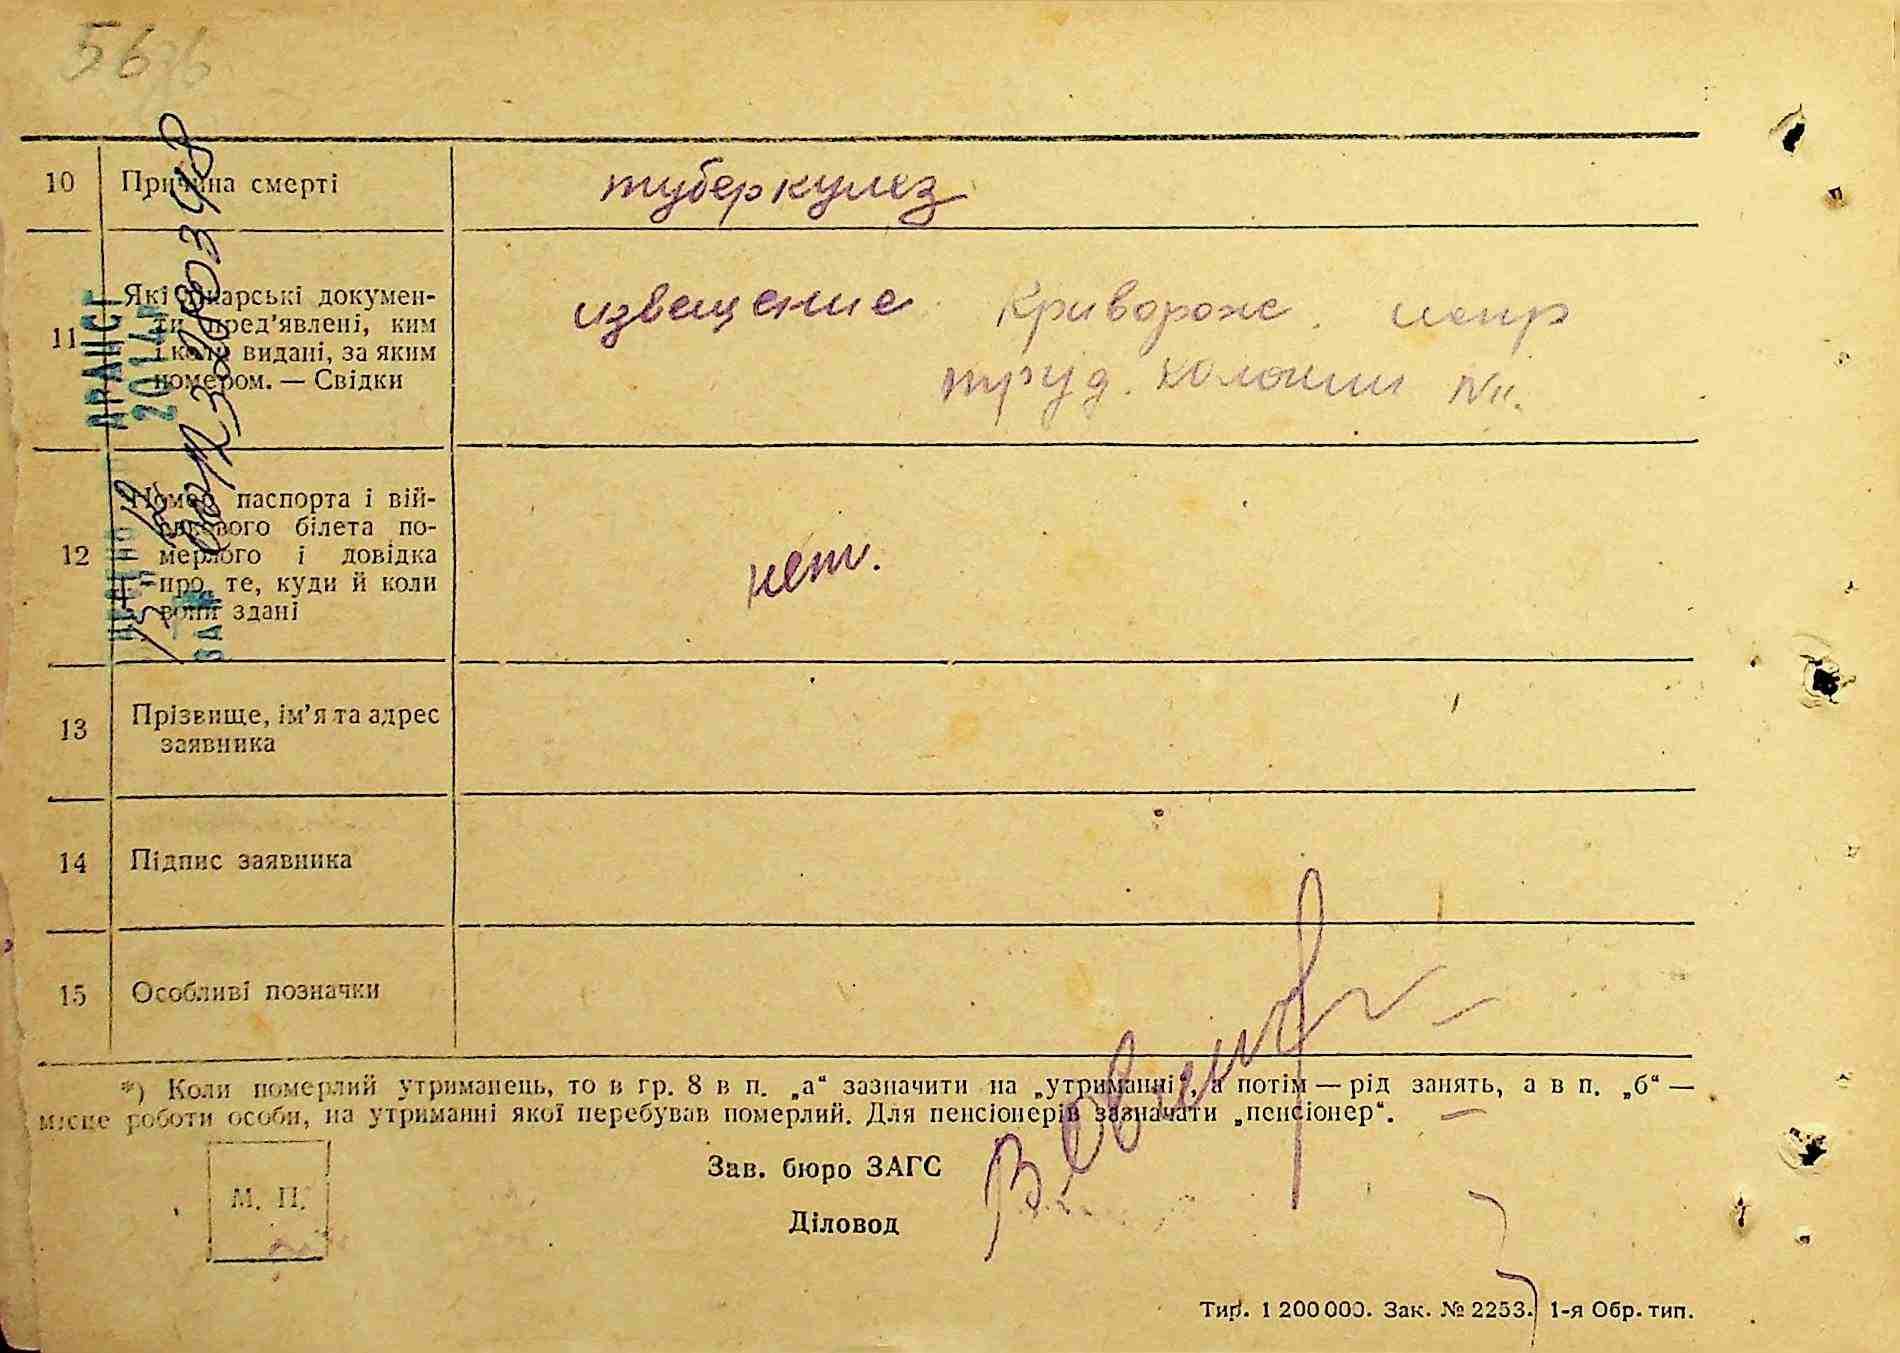 56
10 Причина смерті туберкулез
11 Які лікарські докумен-
ти пред'явлені, ким
і коли видані, за яким
номером. — Свідки
извещение Криворож. испр
труд. колонии №
12 Номер паспорта і вій-
ськового білета по-
мерлого і довідка
про те, куди й коли
вони здані
нет.
13 Прізвище, ім'я та адрес
заявника
14 Підпис заявника
15 Особливі позначки
*) Коли померлий утриманець, то в гр. 8 в п. „а“ зазначити на „утриманні“, а потім — рід занять, а в п. „б“ —
місце роботи особи, на утриманні якої перебував померлий. Для пенсіонерів зазначати „пенсіонер“.
М. П.
Зав. бюро ЗАГС
Діловод
Тир. 1 200 000. Зак. № 2253. 1-я Обр. тип.
АРАЦС